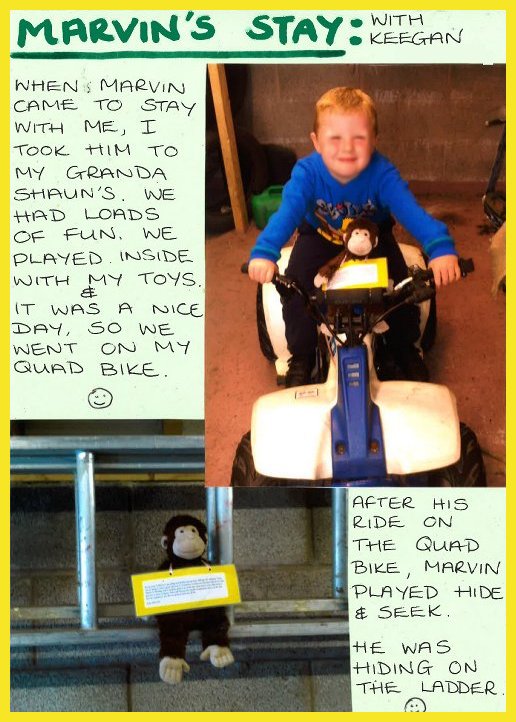 MARVIN'S STAY: WITH
KEEGAN
WHEN MARVIN
CAME TO STAY
WITH ME, I
TOOK HIM TO
MY GRANDA
SHAUN'S. WE
HAD LOADS
OF FUN. WE
PLAYED INSIDE
WITH MY TOYS.
&
IT WAS A NICE
DAY, SO WE
WENT ON MY
QUAD BIKE.
AFTER HIS
RIDE ON
THE QUAD
BIKE, MARVIN
PLAYED HIDE
& SEEK.
HE WAS
HIDING ON
THE LADDER.